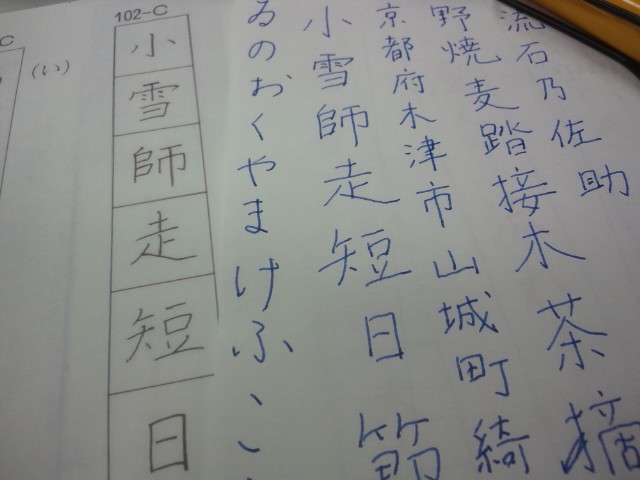 流石乃佐助
野焼麦踏接木茶摘
京都府木津市山城町綺
小雪師走短日節
ゐのおくやまけふこ
102-C
小雪師走短日
(い)
C